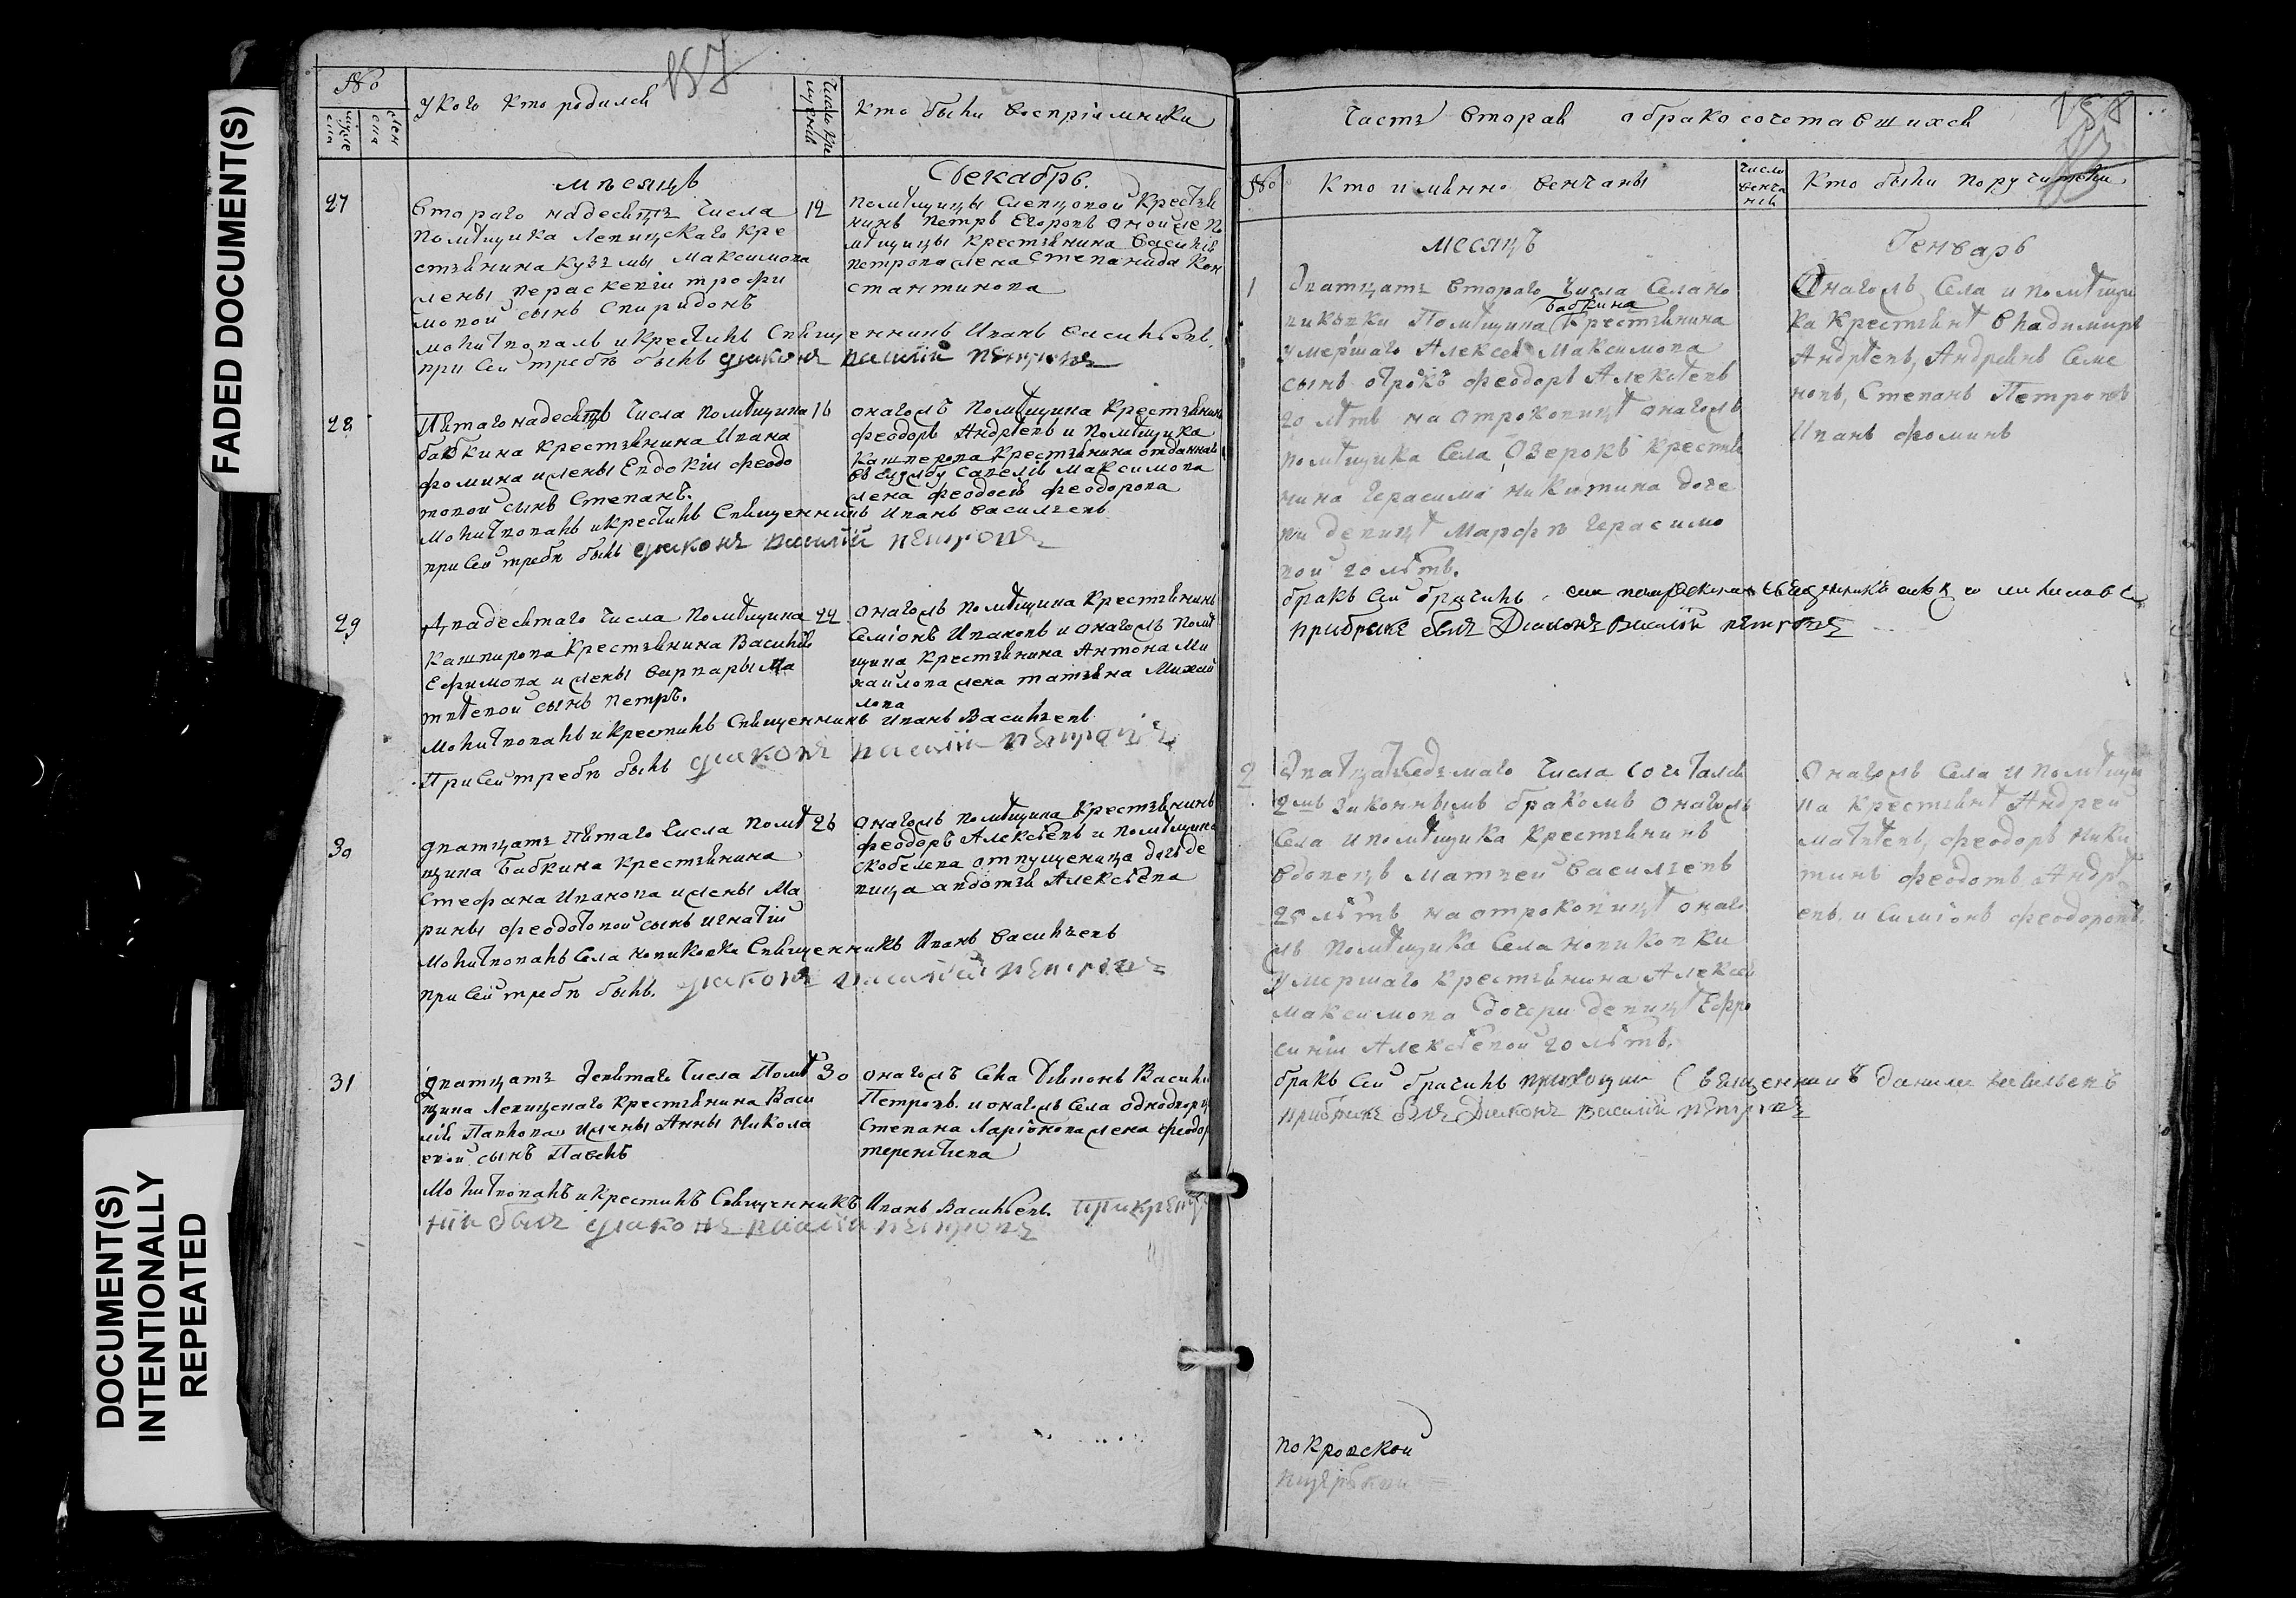 FADED DOCUMENT(S)
DOCUMENT(S)
INTENTIONALLY
REPEATED
187
№
У кого кто родился
Число крещенія
кто были воспріемники
мѣсяцъ Декабрь.
27
Втораго надесять числа
помѣщика Левицскаго кре
стьянина Куззмы Максимова
жены Параскевіи Трофи
мовой сынъ Спиридонъ
12
помѣщицы Слепцовой крестья
нинъ Петръ Егоровъ оной же по
мѣщицы крестьянина Василія
Петрова жена Степанида Кон
стантинова
молитвовалъ и крестилъ Священникъ Иванъ Васильевъ.
при сей требѣ былъ діаконъ Василій Петровъ
28
Пятагонадесять числа помѣщика
Бабкина крестьянина Ивана
Фомина и жены Евдокіи Федо
товой сынъ Степанъ.
16
онагожъ помѣщика крестьянинъ
Феодоръ Андрѣевъ и помѣщика
Кашперова крестьянина отданнаго
въ службу Савелія Максимова
жена Феодосія Феодорова
Молитвовалъ и крестилъ Священникъ Иванъ Васильевъ
при сей требѣ былъ діаконъ Василій Петровъ
29
Двадесятаго числа помѣщика
Кашпирова крестьянина Василія
Ефимова и жены Варвары Ма
твѣевой сынъ Петръ.
22
онагожъ помѣщика крестьянинъ
Семіонъ Ивановъ и онагожъ помѣ
щика крестьянина Антона Ми
хайлова жена Татьяна Михай
лова
Молитвовалъ и крестилъ Священникъ Иванъ Васильевъ
При сей требѣ былъ діаконъ Василій Петровъ
30
дватцать пятаго числа помѣ
щика Бабкина крестьянина
Стефана Иванова и жены Ма
рины Феодотовой сынъ Игнатій
26
онагожъ помѣщика крестьянинъ
Феодоръ Алексѣевъ и помѣщика
Скобелева отпущеница дочь де
вица Авдотья Алексѣева
Молитвовалъ Села Новиковки Священникъ Иванъ Васильевъ
при сей требѣ былъ. діаконъ Василій Петровъ
31
дватцать девятаго числа Помѣ
щика Левицскаго крестьянина Васи
лія Павлова и жены Анны Никола
евой сынъ Павелъ
30
онагожъ Села Васил
Петровъ. и онагожъ Села однодворц
Степана Ларіонова жена Федор
Терентьева
Молитвовалъ и крестилъ Священникъ Иванъ Васильевъ. При креще
ніи былъ діаконъ Василій Петровъ
188
Часть вторая о бракосочетавшихся
№
Кто именно венчаны
число венчанія
Кто были поручители
месяцъ Генварь
1
Дватцать втораго числа Села Но
виковки Помѣщика Бабкина крестьянина
умершаго Алексея Максимова
сынъ отрокъ Феодоръ Алексѣевъ
20 лѣтъ на отроковицѣ онагожъ
помѣщика Села Озерокъ крестья
нина Герасима Никитина доче
ри девицѣ Марфѣ Герасимо
вой 20 лѣтъ.
Онагожъ Села и помѣщи
ка крестьянѣ Владимиръ
Андрѣевъ, Андреянъ Семе
новъ, Степанъ Петровъ
Иванъ Фоминъ
бракъ сей брачилъ
при браке былъ Диаконъ Василій Петровъ
2
Дватцать седьмаго числа сочтался
2мъ законнымъ бракомъ онагожъ
Села и помѣщика крестьянинъ
вдовецъ Матвей Васильевъ
25 лѣтъ на отроковицѣ онаго
жъ помѣщика Села Новиковки
умершаго крестьянина Алексея
Максимова дочери девицѣ Ефро
синіи Алексѣевой 20 лѣтъ.
Онагожъ Села и помѣщи
ка крестьянѣ Андрей
Матвѣевъ, Феодоръ Ники
тинъ Феодотъ Андрѣ
евъ. и Симіонъ Феодоровъ.
бракъ сей брачилъ приходщий Священникъ Данила Васильевъ
при браке былъ Диаконъ Василій Петровъ
покровской